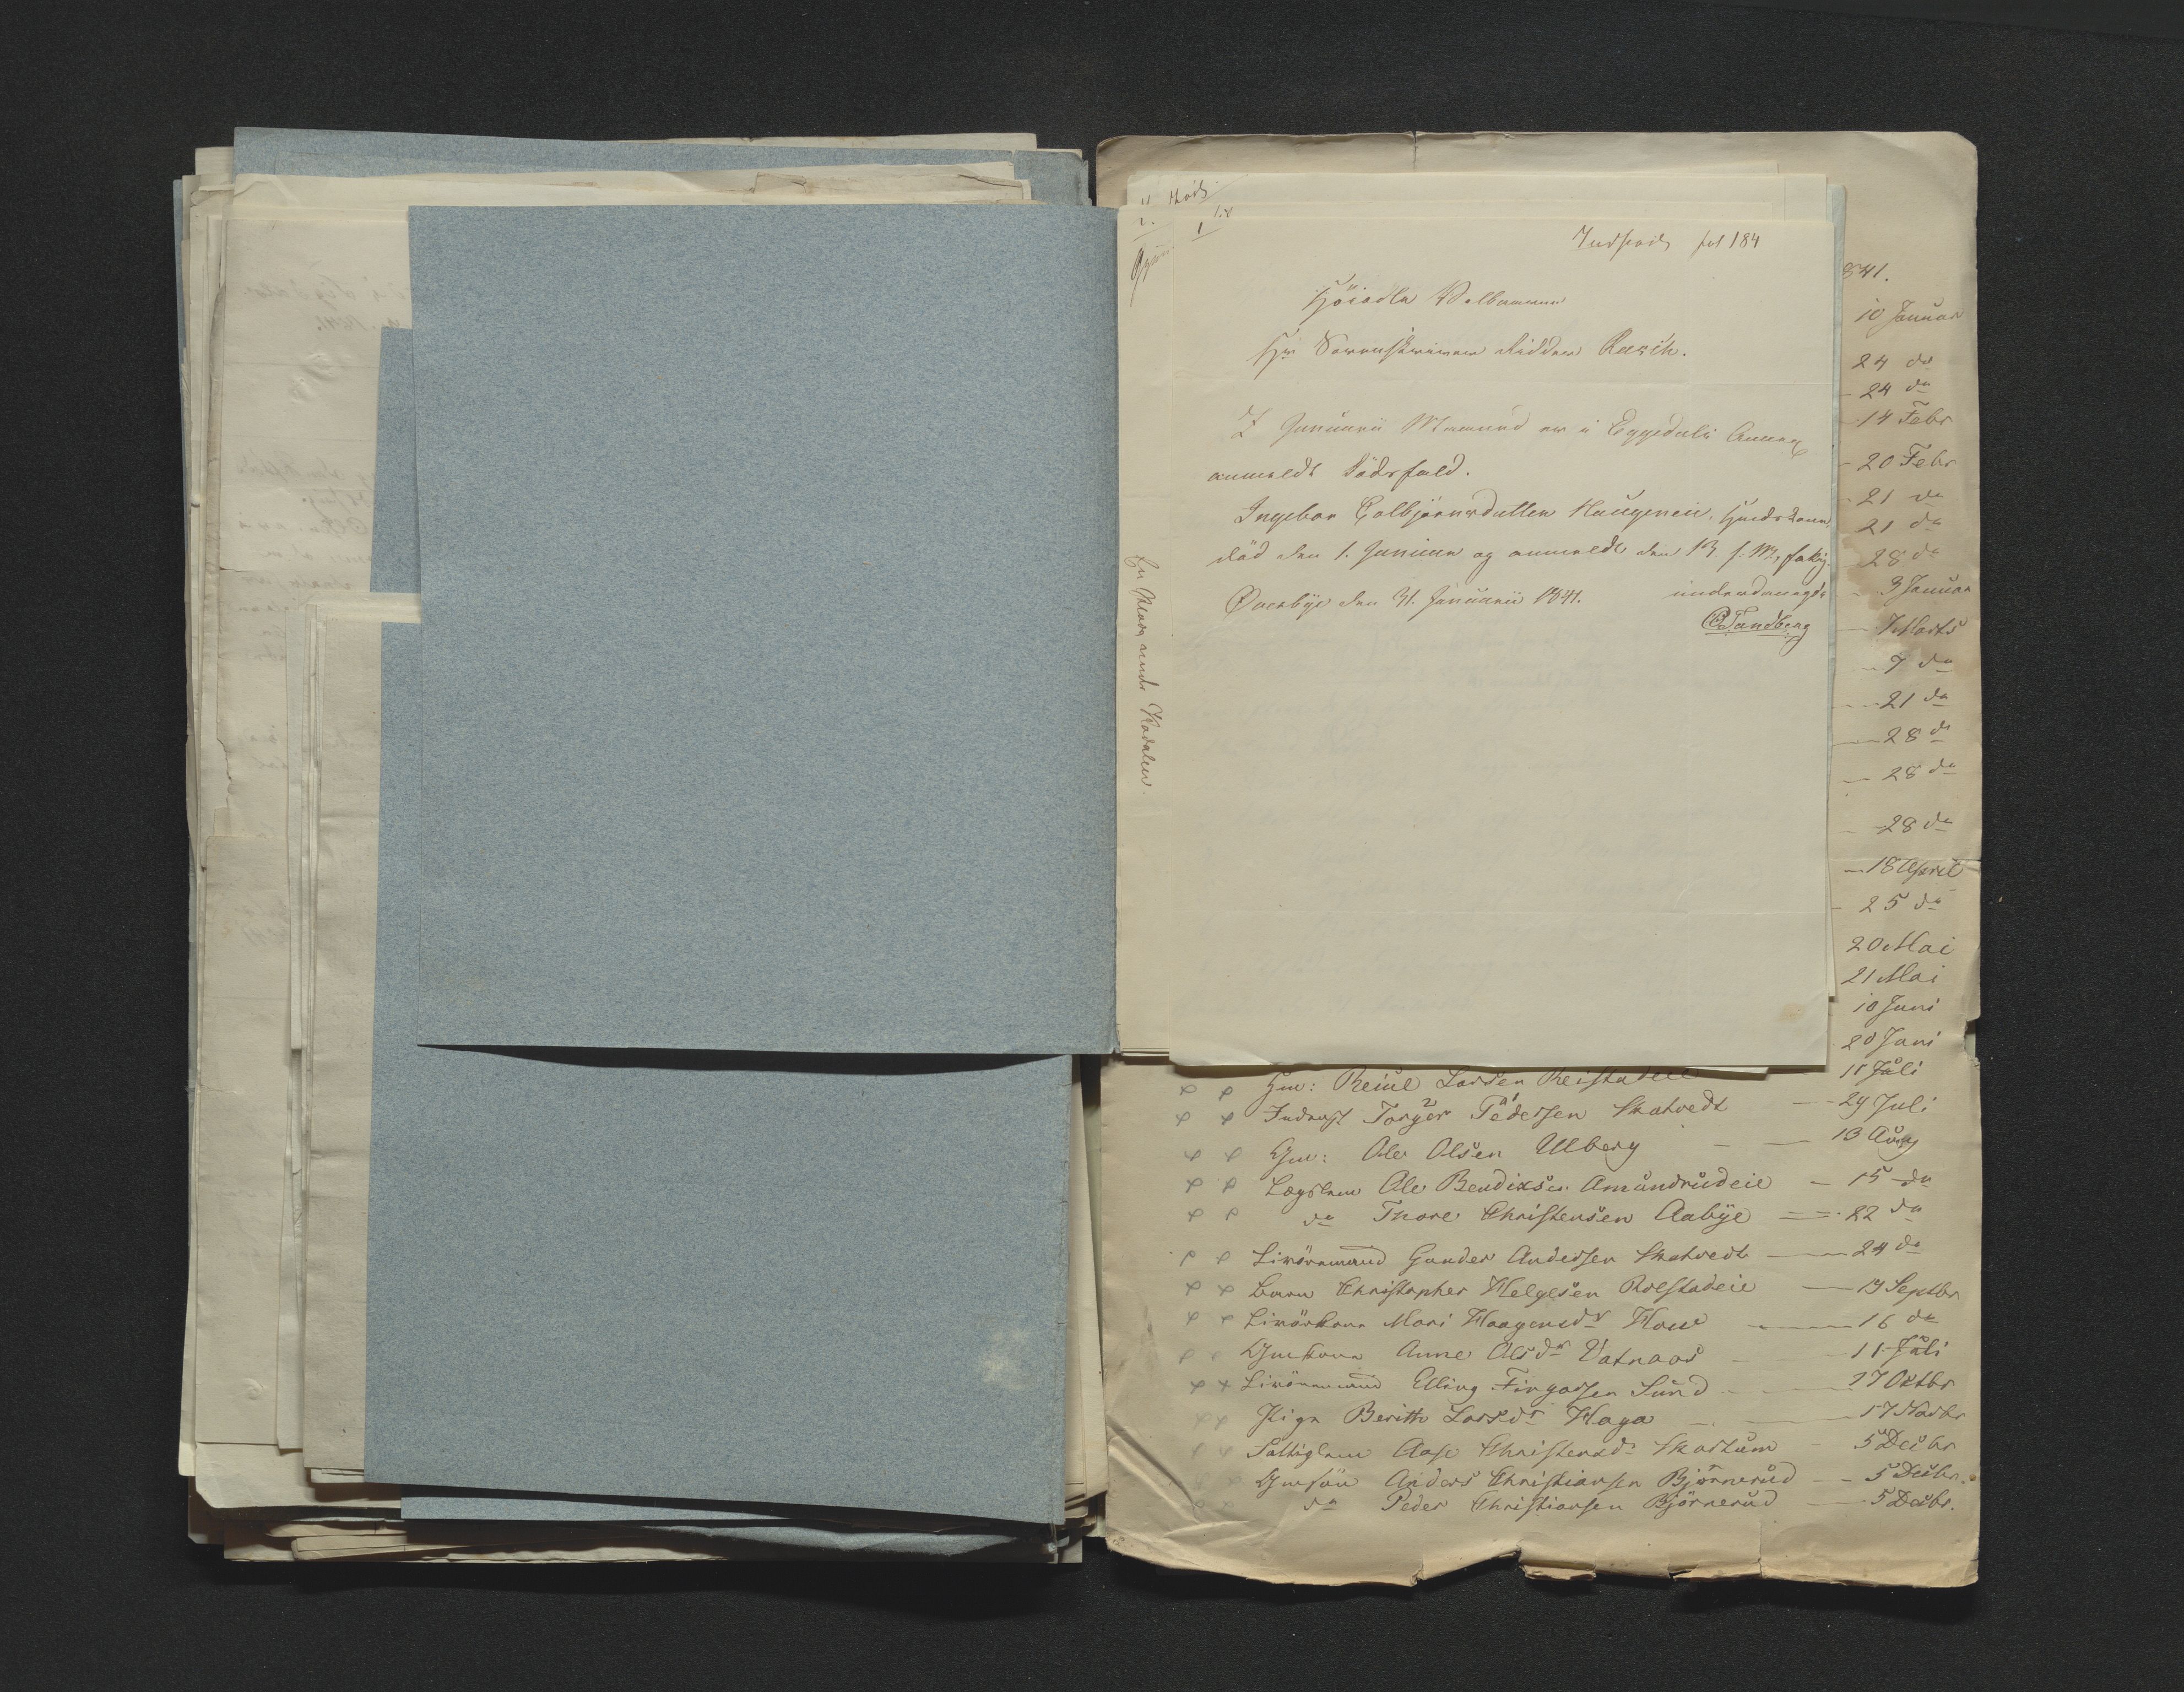 Indført fol 184
Høiædle Velbaarne
Hr Sorenskriver Ridder Rasch.
I Januarii Maaned er i Eggedals Annex
anmeldt Dødsfald.
Ingebor Colbjørnsdatter Haugeneie, Huuskone
død den 1. Januar og anmeldt den 13 s. M.,
Overbye den 31. Januarii 1841. underdanigst
Tandberg
841.
10 Januar
24 do
24 do
14 Febr
20 Febr
21 do
21 do
28 do
3 Januar
7 Marts
7 do
21 do
28 do
28 do
28 do
18 April
25 do
20 Mai
21 Mai
10 Juni
20 Juni
11 Juli
Gm: Reiul Larsen
Inderst Torger Pedersen Skatvedt - 29 Juli
Gm: Ole Olsen Ulberg - 13 Aug
Lægslem Ole Bendixsen Amundrudeie - 15 do
do Thore Christensen Aabye - 22 do
Livøremand Gunder Andersen Skatvedt - 24 do
Barn Christopher Helgesen Rolstadeie - 13 Septbr
Livørkone Mari Haagensdr - 16 do
Gmkone Anne Olsdr Vatnaas - 11 Juli
Livøremand Elling Fingarsen Sund - 17 Oktbr
Pige Berith Larsdr Haga - 17 Novbr
Fattiglem Aase Christensdr Skartum - 5 Decbr
Gmsøn Anders Christiansen Bjørnerud - 5 Decbr.
do Peder Christiansen Bjørnerud - 5 Decbr.